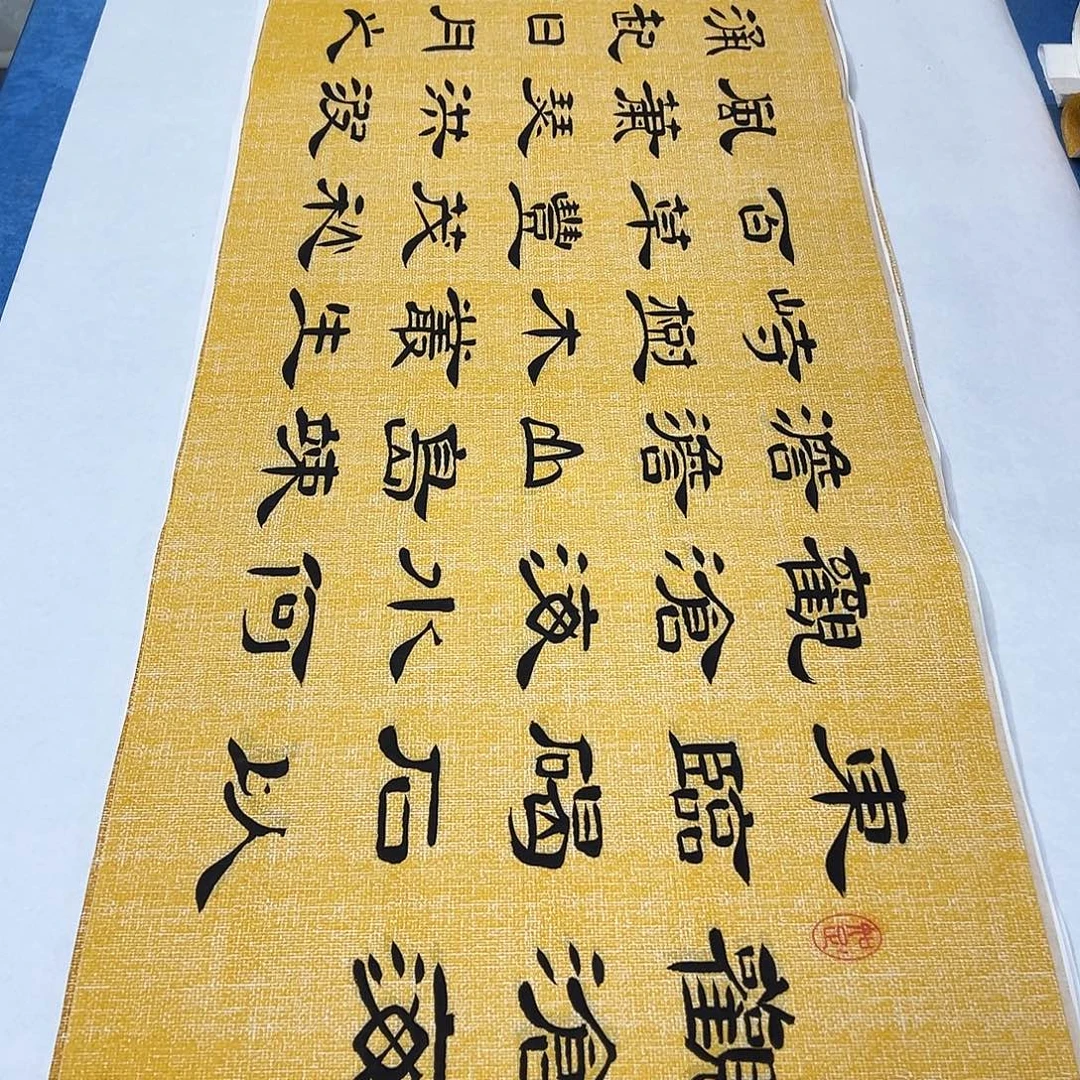 觀滄海
東臨碣石以
觀滄海水何
澹澹山島竦
峙樹木叢生
百草豐茂秋
風蕭瑟洪波
湧起日月之